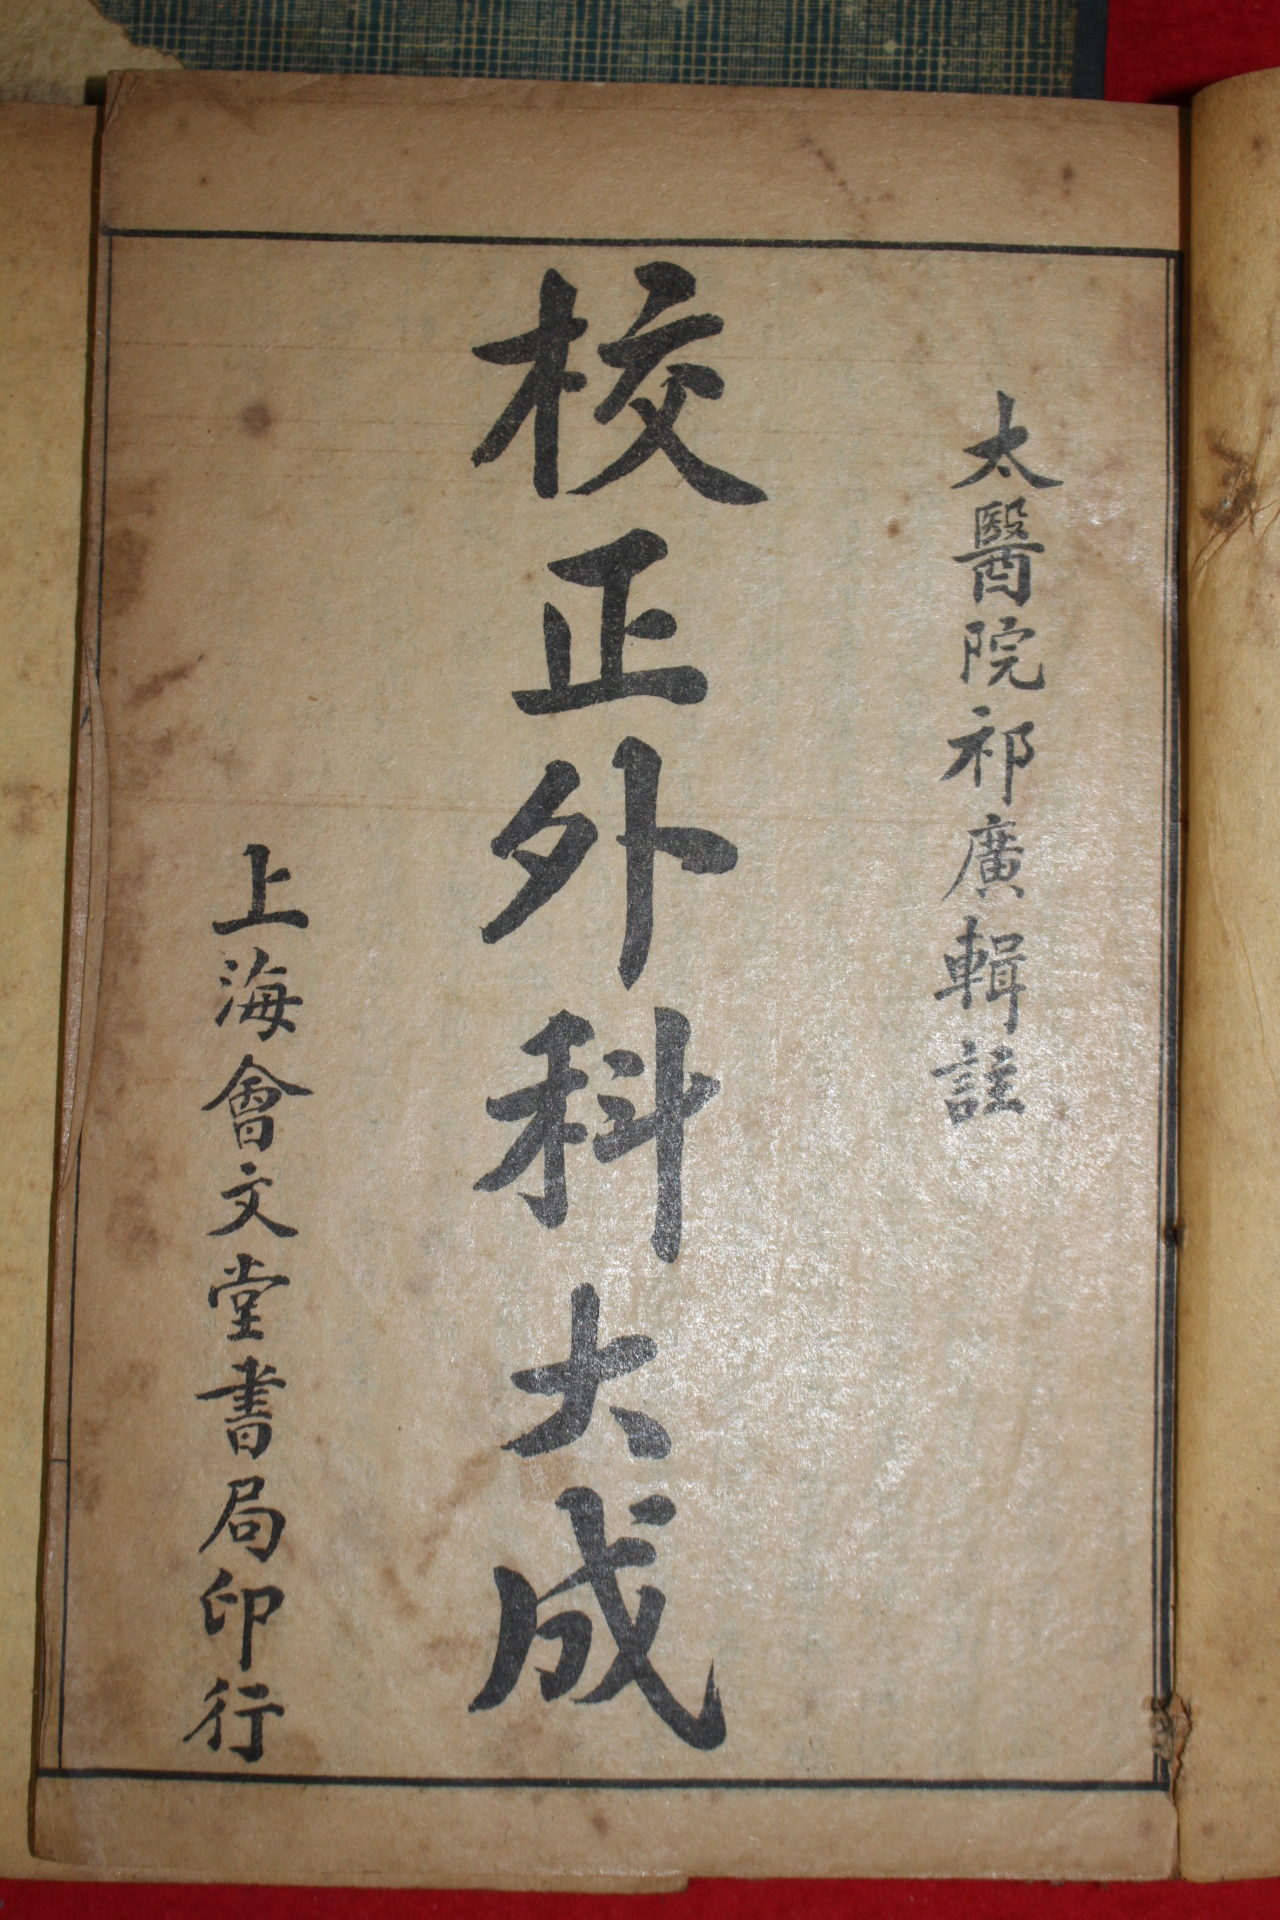 太醫院祁廣輯註
校正外科大成
上海會文堂書局印行